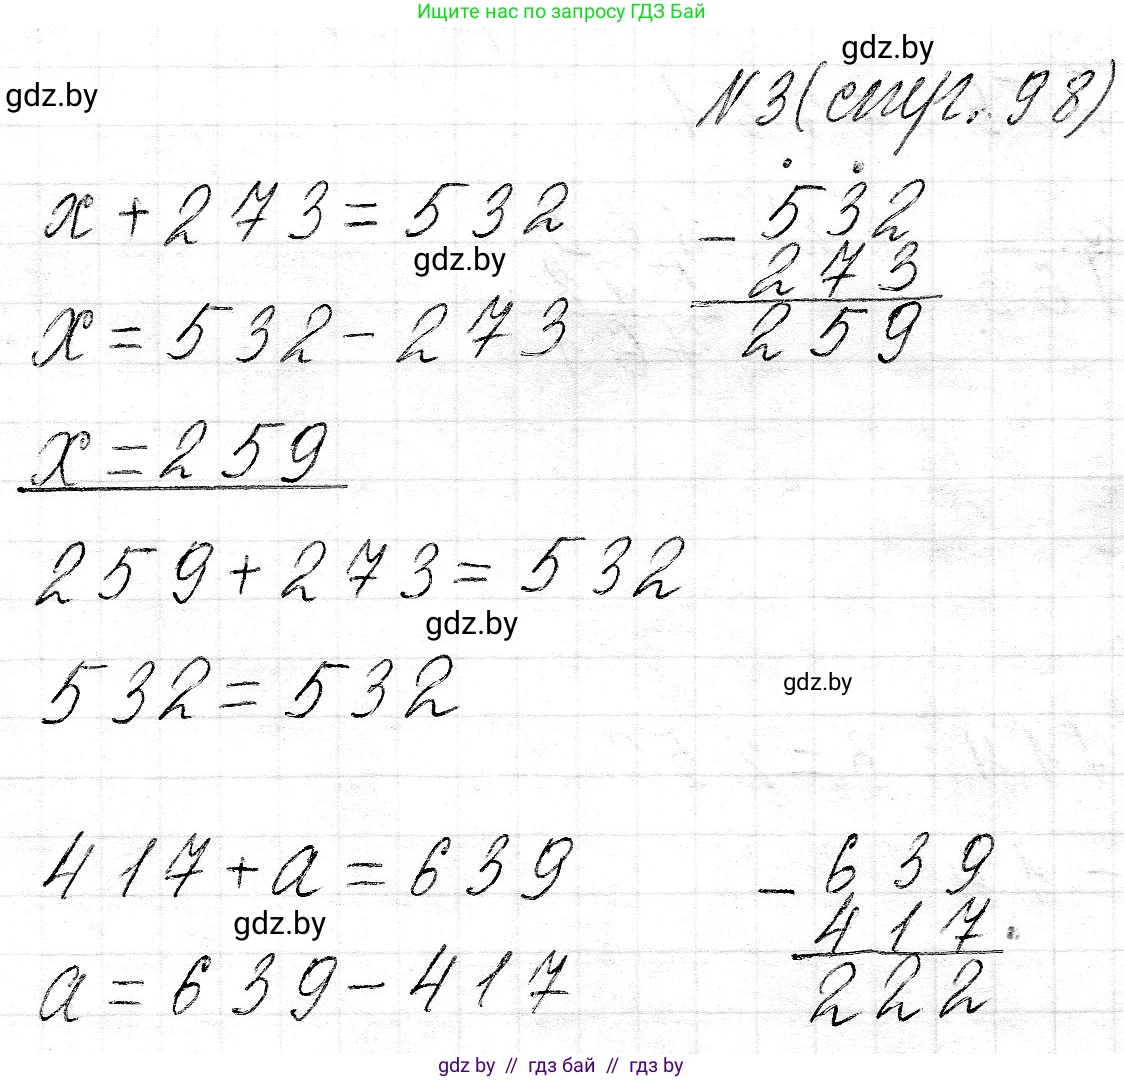 Ищите нас по запросу ГДЗ Бай
gdz.by
gdz.by
N 3 (стр. 98)
x + 273 = 532
- 532
273
259
gdz.by
x = 532 - 273
x = 259
259 + 273 = 532
gdz.by
532 = 532
gdz.by
417 + a = 639
- 639
417
222
gdz.by
a = 639 - 417
gdz by // гдз бай // гдз by